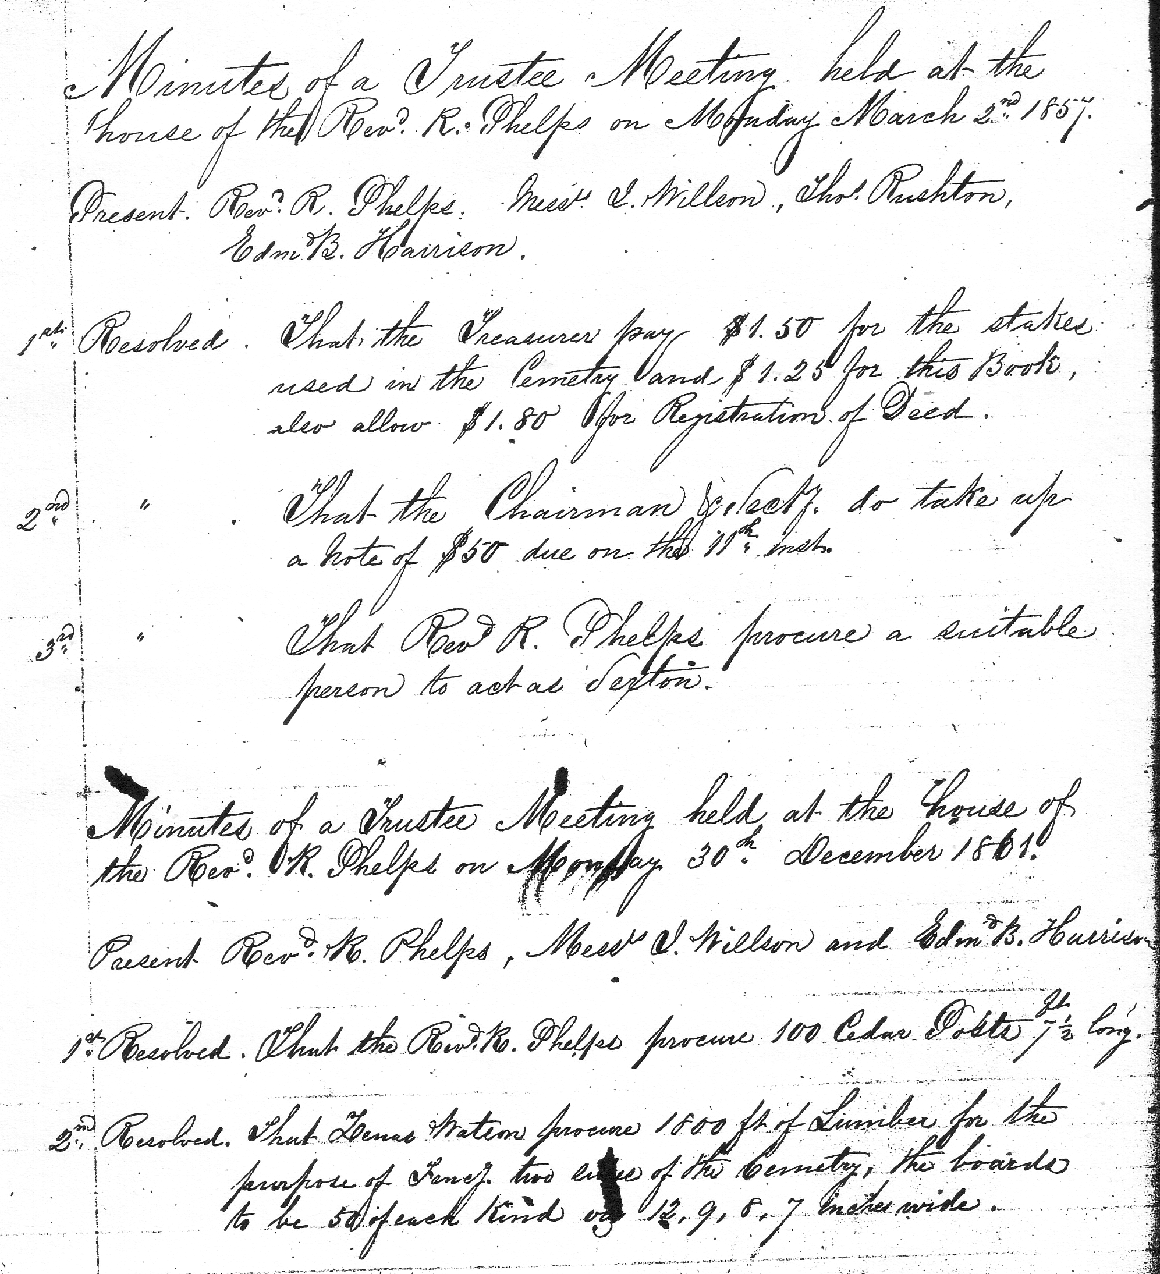 Minutes of a Trustee Meeting held at the
house of the Revd. R. Phelps on Monday March 2nd 1857.
Present. Revd. R. Phelps. Messrs. I. Willson, Thos. Rushton,
Edmd B. Harrison.
1st. Resolved. That the Treasurer pay $1.50 for the stakes
used in the Cemetry and $1.25 for this Book,
also allow $1.80 for Registration of Deed.
2nd. " . That the Chairman & Secty. do take up
a Note of $50 due on the 11th inst.
3rd. " That Revd R. Phelps procure a suitable
person to act as Sexton.
Minutes of a Trustee Meeting held at the house of
the Revd. R. Phelps on Monday 30th December 1861.
Present Revd. R. Phelps, Messrs I. Willson and Edmd B. Harrison
1st. Resolved. That the Revd. R. Phelps procure 100 Cedar Posts 7½ ft long.
2nd. Resolved. That Watson procure 1800 ft of Lumber for the
purpose of Fencg. two sides of the Cemetry, the boards
to be 50 of each Kind viz 12, 9, 8, 7 inches wide.